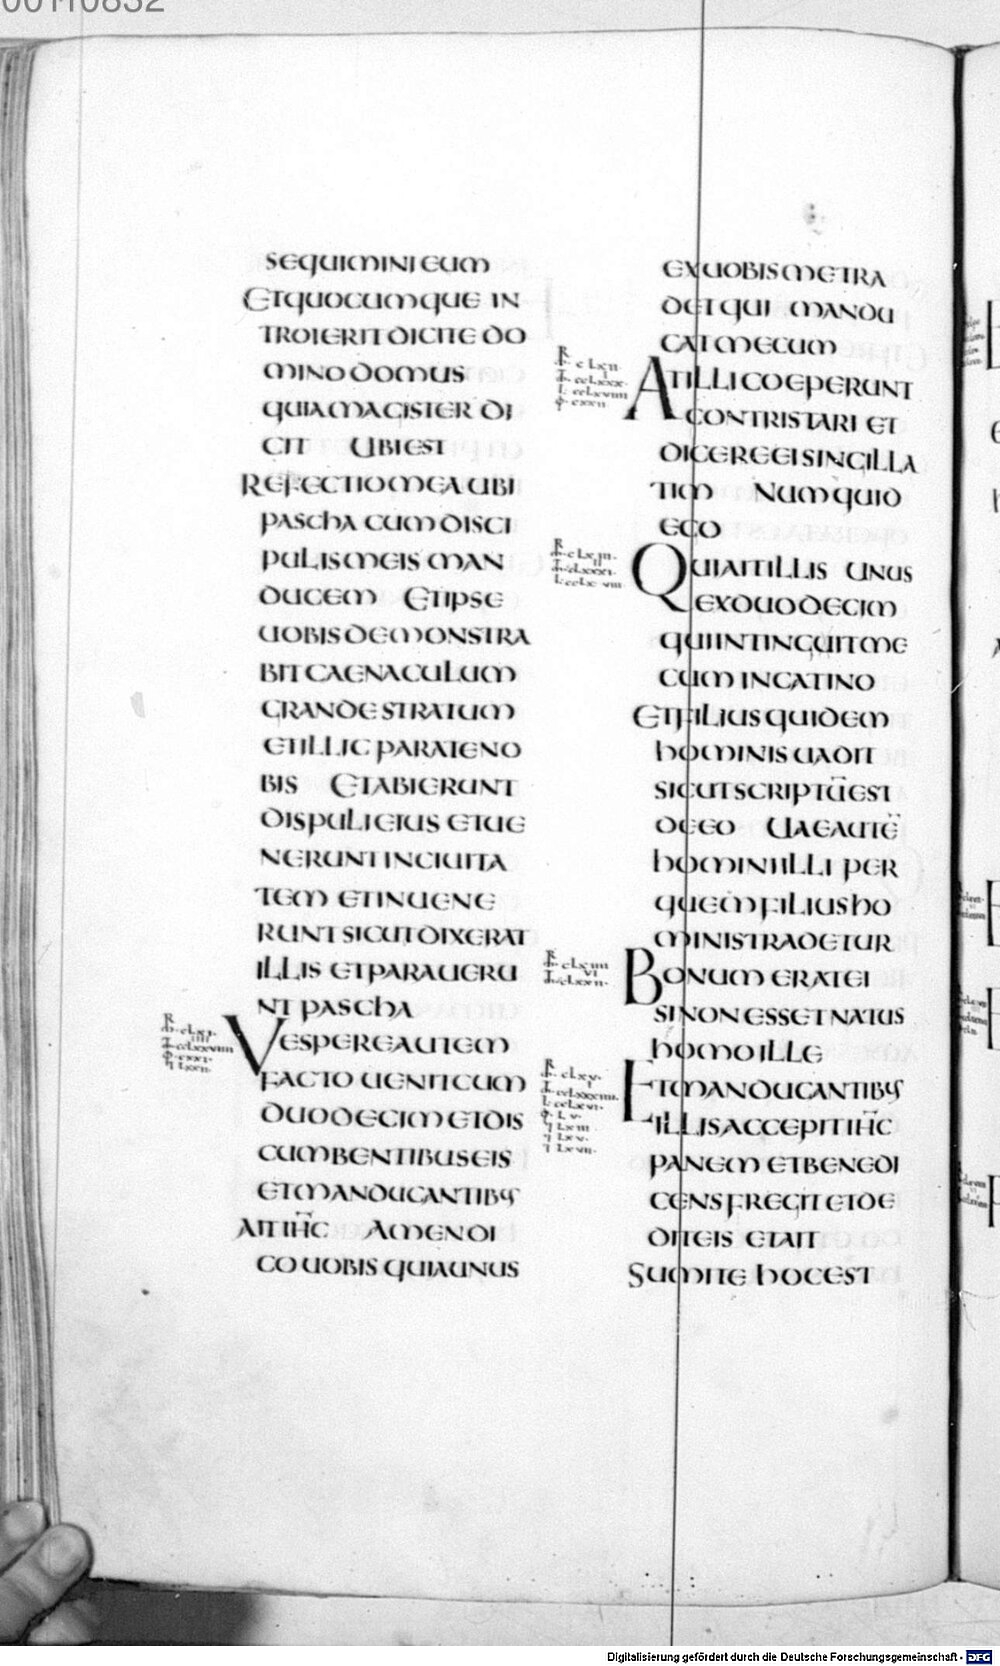 00110832
sequimini eum
Etquocumque in
troierit dicite do
mino domus
quia magister di
cit Ubiest
Refectio mea ubi
pascha cum disci
pulis meis man
ducem Etipse
uobis demonstra
bit caenaculum
grande stratum
et illic parate no
bis Et abierunt
discipuli eius et ue
nerunt in ciuita
tem et inuene
runt sicut dixerat
illis et parauerū
nt pascha
Vespere autem
facto uenit cum
duodecim et dis
cumbentibus eis
et manducantibus
ait ihc Amen di
co uobis quia unus
ex uobis me tra
det qui mandu
cat mecum
At illi coeperunt
contristari et
dicere ei singilla
tim Numquid
ego
Qui ait illis unus
ex duodecim
qui intinguit me
cum in catino
Et filius quidem
hominis uadit
sicut scriptū est
de eo Uae autē
homini illi per
quem filius ho
minis tradetur
Bonum erat ei
si non esset natus
homo ille
Et manducantibus
illis accepit ihc
panem et benedi
cens fregit et de
dit eis et ait
Sumite hoc est
Digitalisierung gefördert durch die Deutsche Forschungsgemeinschaft - DFG